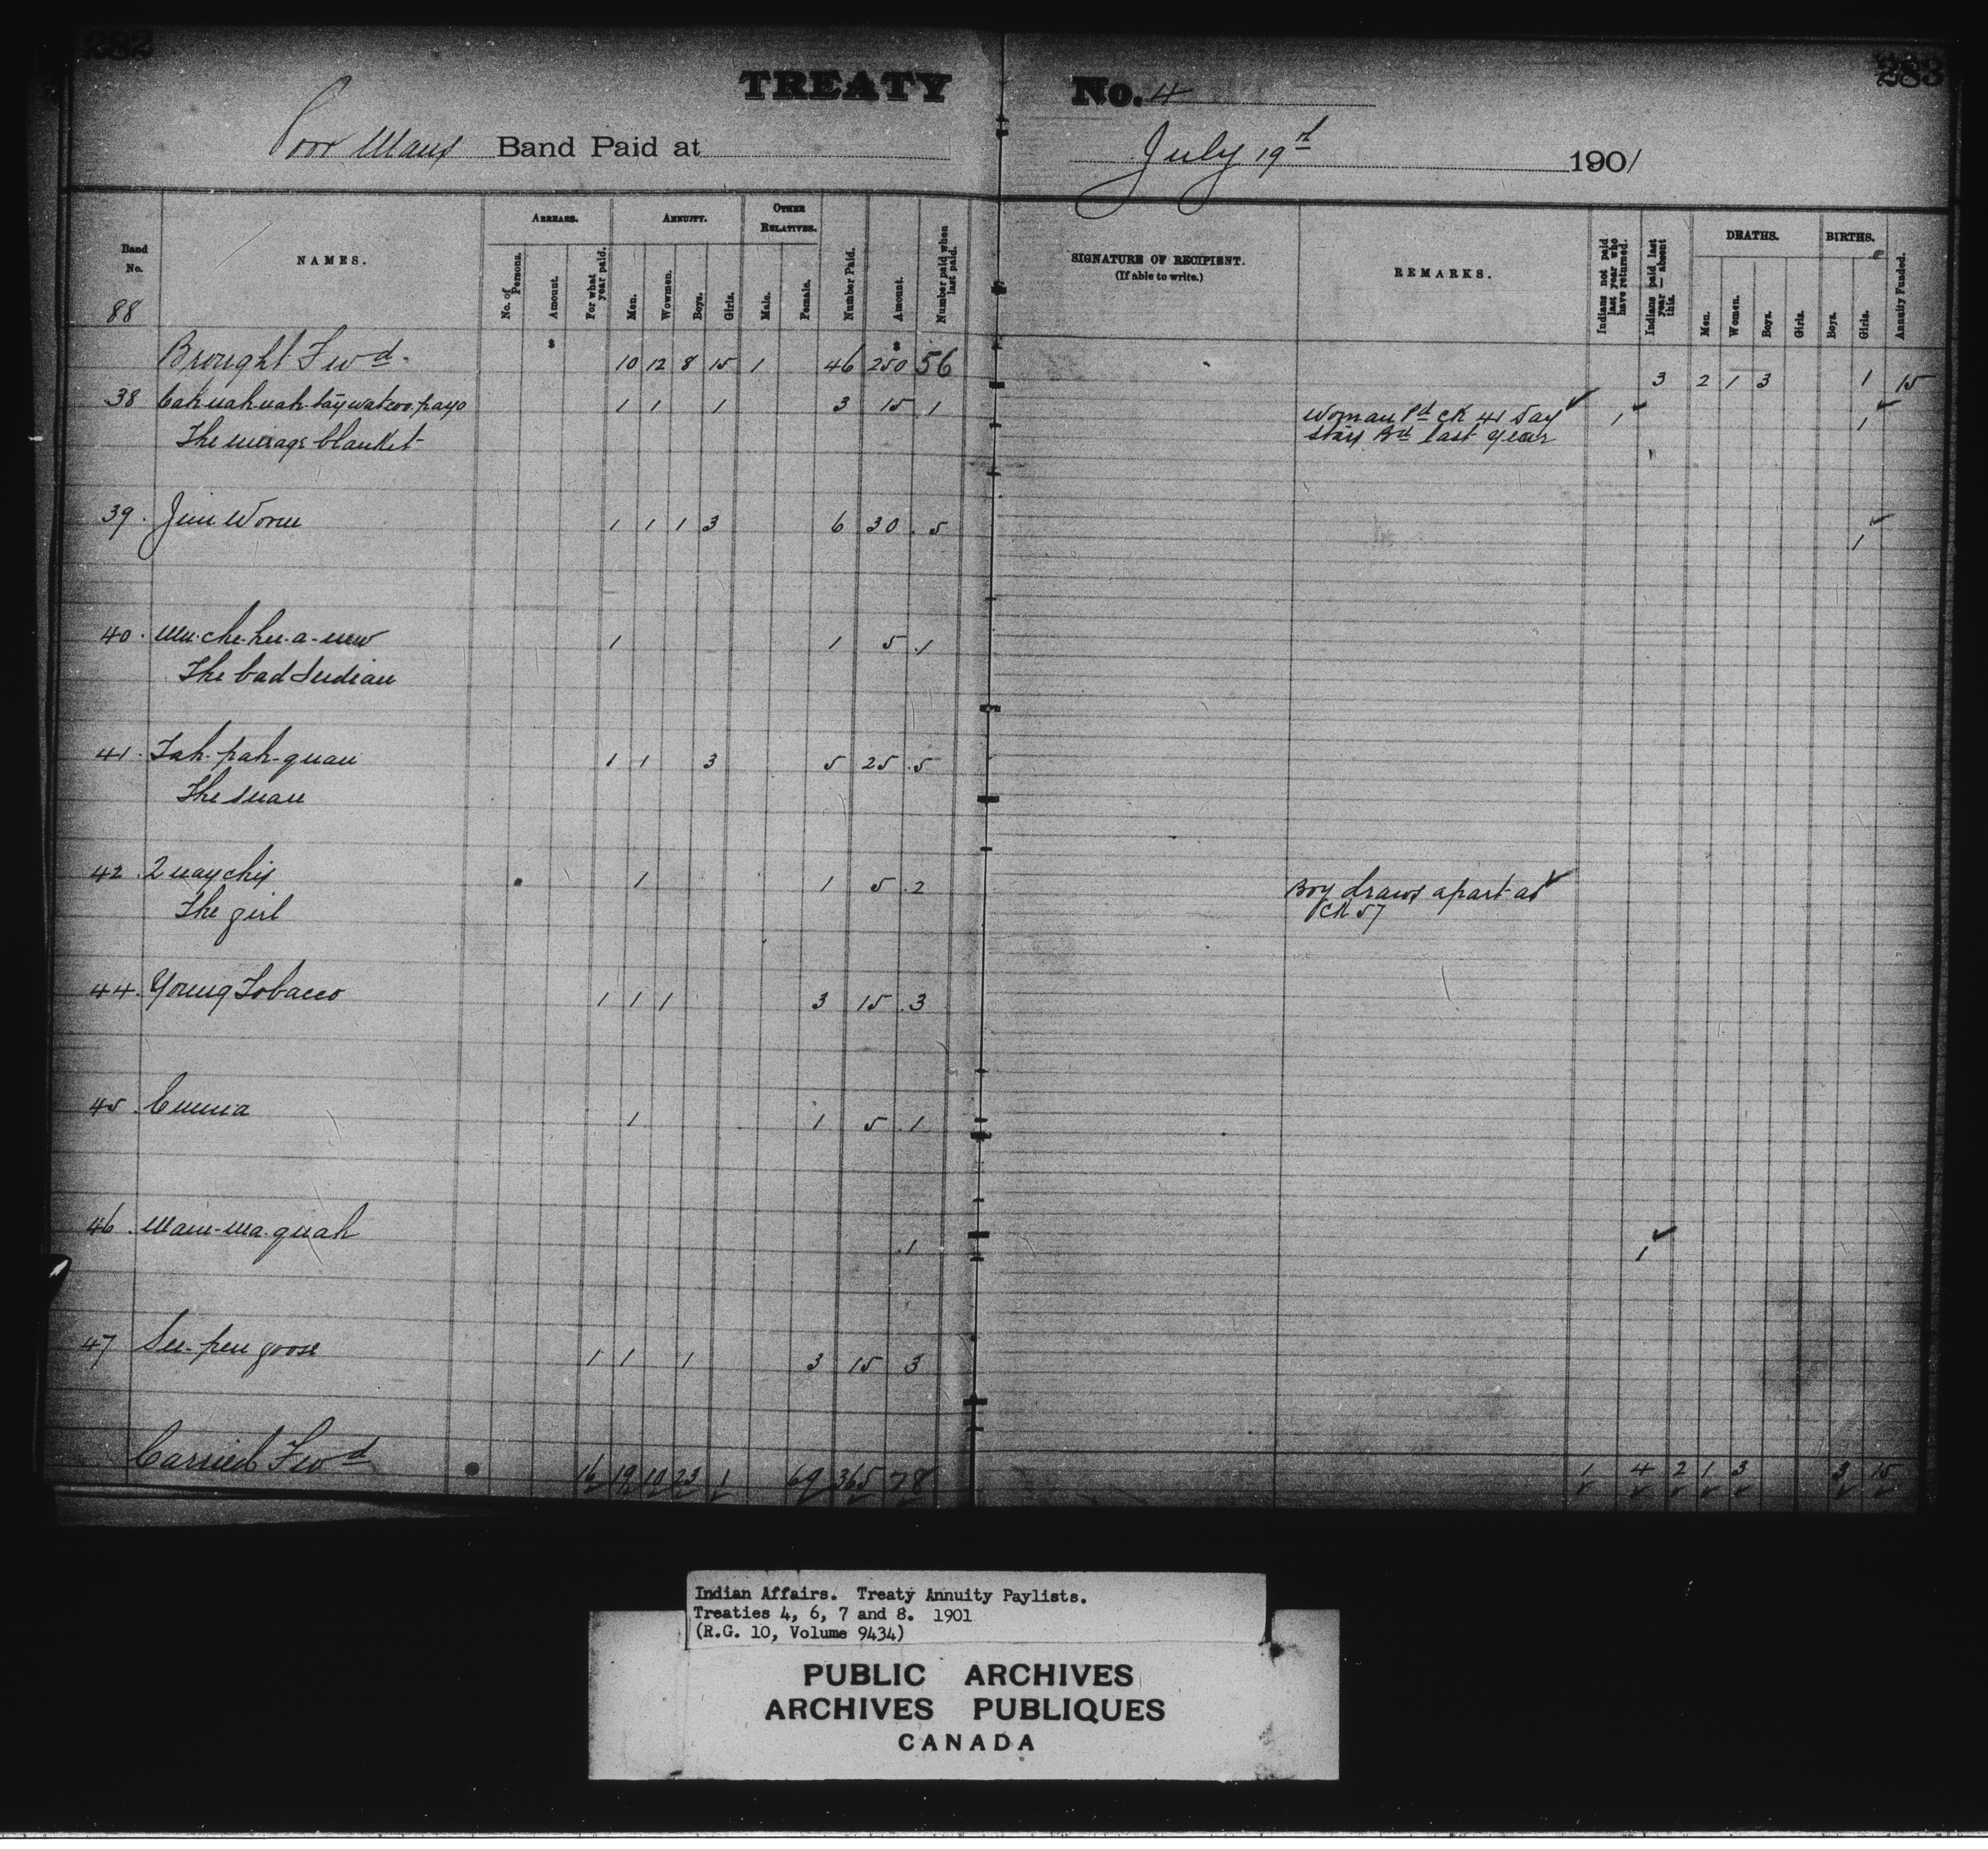 282
283
TREATY No. 4
Poor Mans Band Paid at July 19th 1901
Band No.
NAMES.
ARREARS.
No. of Persons.
Amount.
For what year paid.
ANNUITY.
Men.
Wowmen.
Boys.
Girls.
OTHER RELATIVES.
Male.
Female.
Number Paid.
Amount.
Number paid when last paid.
SIGNATURE OF RECIPIENT.
(If able to write.)
REMARKS.
Indians not paid last year who have returned.
Indians paid last year — absent this.
DEATHS.
Men.
Women.
Boys.
Girls.
BIRTHS.
Boys.
Girls.
Annuity Funded.
88
$ $
Brought Fwd. 10 12 8 15 1 46 250 56 3 2 1 3 1 15
38 1 1 1 3 15 1 Woman Pd ck 41 Day 1 1
The mirage blanket Stay Bd last year
39. Jim Worm 1 1 1 3 6 30 5 1
40. Mu-che-hu-a-new 1 1 5 1
The bad Indian
41. Tah-pah-quan 1 1 3 5 25 5
The snare
42 Quaychis 1 1 5 2 Boy draws apart as
The girl ck 57
44. Young Tobacco 1 1 1 3 15 3
45 Emma 1 1 5 1
46. Mam-ma-quah 1 1
47 See-pen goose 1 1 1 3 15 3
Carried Fwd 16 19 10 23 1 69 365 78 1 4 2 1 3 3 15
Indian Affairs. Treaty Annuity Paylists.
Treaties 4, 6, 7 and 8. 1901
(R.G. 10, Volume 9434)
PUBLIC ARCHIVES
ARCHIVES PUBLIQUES
CANADA